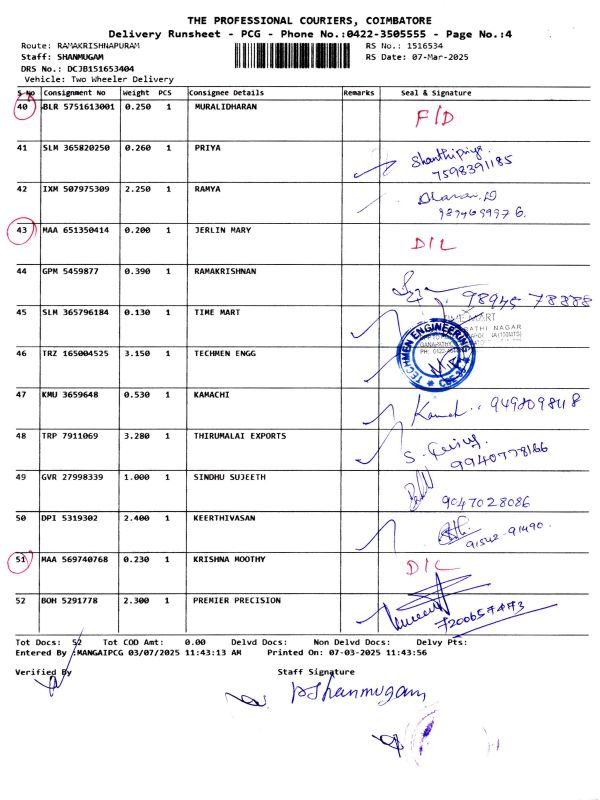 THE PROFESSIONAL COURIERS, COIMBATORE
Delivery Runsheet - PCG - Phone No.:0422-3505555 - Page No.:4
Route: RAMAKRISHNAPURAM RS No.: 1516534
Staff: SHANMUGAM RS Date: 07-Mar-2025
DRS No.: DCJB151653404
Vehicle: Two Wheeler Delivery
S No Consignment No Weight PCS Consignee Details Remarks Seal & Signature
40 BLR 5751613001 0.250 1 MURALIDHARAN F/D
41 SLM 365820250 0.260 1 PRIYA Shanthipriya
7598391185
42 IXM 507975309 2.250 1 RAMYA
43 MAA 651350414 0.200 1 JERLIN MARY D/L
44 GPM 5459877 0.390 1 RAMAKRISHNAN 98945 78888
45 SLM 365796184 0.130 1 TIME MART TIME MART
46 TRZ 165004525 3.150 1 TECHMEN ENGG TECHMEN ENGINEERING
47 KMU 3659648 0.530 1 KAMACHI
48 TRP 7911069 3.280 1 THIRUMALAI EXPORTS
9940778166
49 GVR 27998339 1.000 1 SINDHU SUJEETH
9047028086
50 DPI 5319302 2.400 1 KEERTHIVASAN
91542-91490
51 MAA 569740768 0.230 1 KRISHNA MOOTHY D/L
52 BOH 5291778 2.300 1 PREMIER PRECISION
7200657473
Tot Docs: 52 Tot COD Amt: 0.00 Delvd Docs: Non Delvd Docs: Delvy Pts:
Entered By :MANGAIPCG 03/07/2025 11:43:13 AM Printed On: 07-03-2025 11:43:56
Verified By Staff Signature
Shanmugam